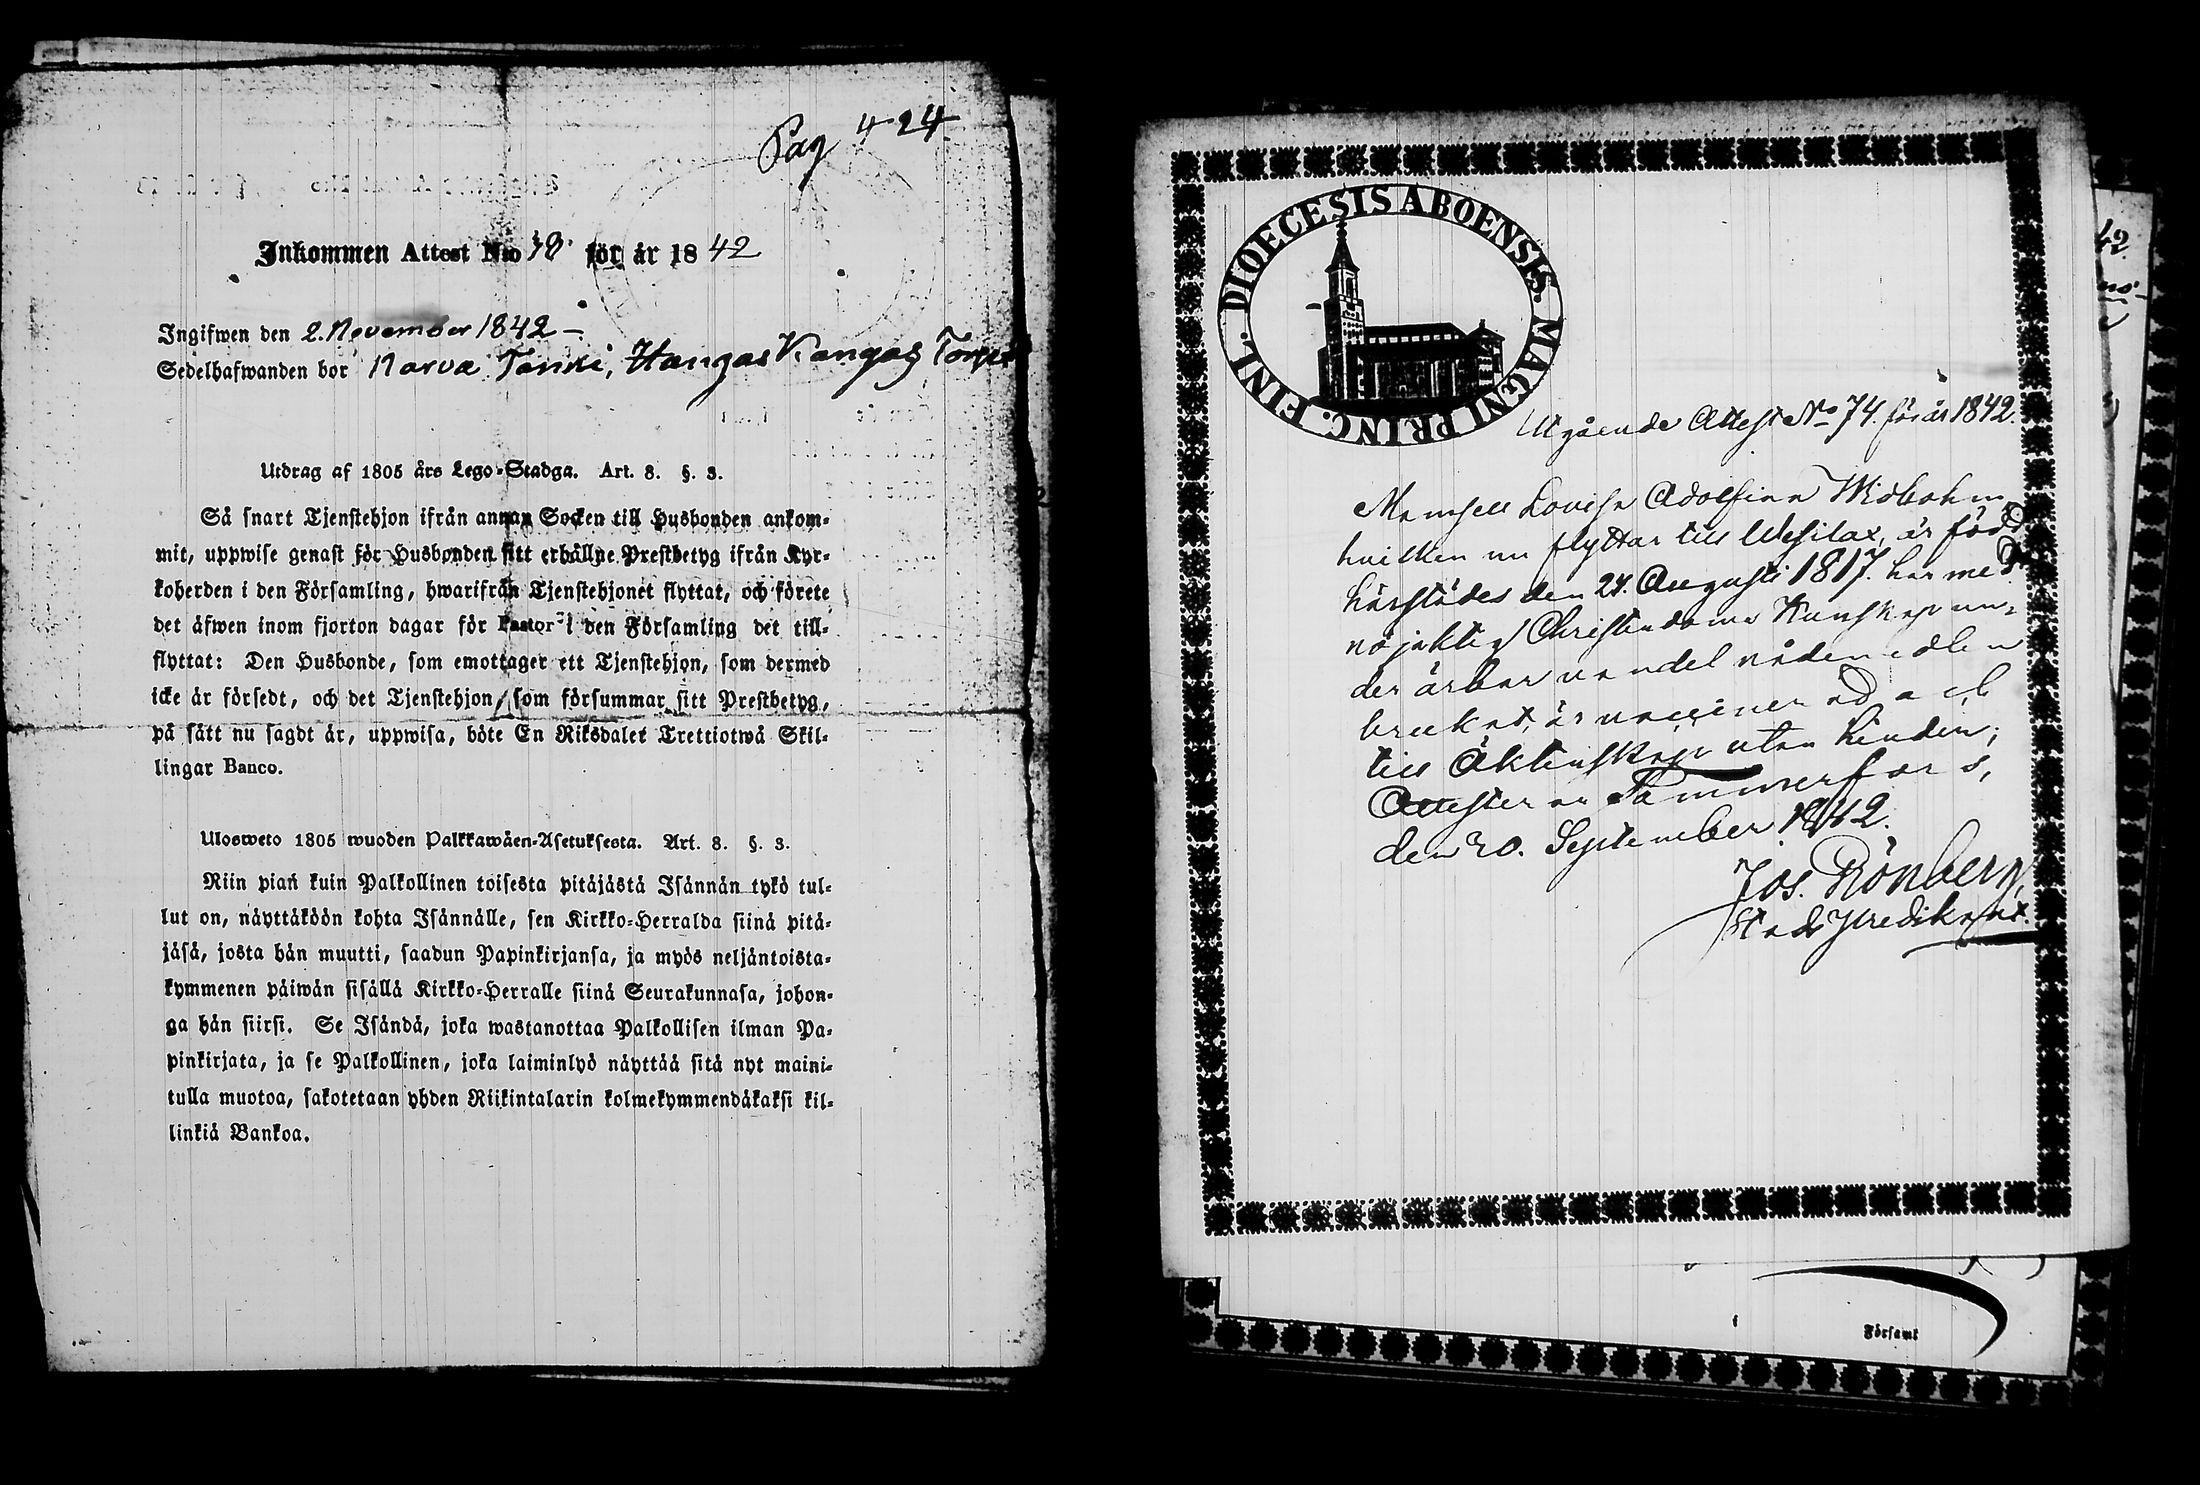 Pag 424
Inkommen Attest N:o 38. för år 1842
Ingifwen den 2. November 1842 –
Sedelhafwanden bor Narva Tanki, Hangas Kangas Torpet
Utdrag af 1805 års Lego-Stadga. Art. 8. §. 3.
Så snart Tjenstehjon ifrån annan Socken till Husbonden ankom-
mit, uppwise genast för Husbonden sitt erhållne Prestbetyg ifrån Kyr-
koherden i den Församling, hwarifrån Tjenstehjonet flyttat, och förete
det äfwen inom fjorton dagar för Pastor i den Församling det till-
flyttat: Den Husbonde, som emottager ett Tjenstehjon, som dermed
icke är försedt, och det Tjenstehjon, som försummar sitt Prestbetyg,
på sätt nu sagdt är, uppwisa, böte En Riksdaler Trettiotwå Skil-
lingar Banco.
Ulosweto 1805 wuoden Palkkawäen-Asetuksesta. Art. 8. §. 3.
Niin pian kuin Palkollinen toisesta pitäjästä Isännän tykö tul-
lut on, näyttäköön kohta Isännälle, sen Kirkko-Herralda siinä pitä-
jäsä, josta hän muutti, saadun Papinkirjansa, ja myös neljäntoista-
kymmenen päiwän sisällä Kirkko-Herralle siinä Seurakunnasa, johon-
ga hän siirsi. Se Isändä, joka wastanottaa Palkollisen ilman Pa-
pinkirjata, ja se Palkollinen, joka laiminlyö näyttää sitä nyt maini-
tulla muotoa, sakotetaan yhden Riikintalarin kolmekymmendäkaksi kil-
linkiä Bankoa.
DIOECESIS ABOENSIS. MAGNI PRINC. FINL.
Utgående Attest No 74. för år 1842.
Mamsell Lovisa Adolfina Widbohm
hvilken nu flyttar till Wesilax, är född
härstädes den 24. Augusti 1817. har med
nöjaktig Christendoms Kunskap un-
der ärbar vandel nådemedlen
brukat, är vaccinerad och
till Äktenskap utan hinder;
Attesterar Tammerfors,
den 20. September 1842.
Jos. Grönberg,
Stads Predikant.
42.
Församl